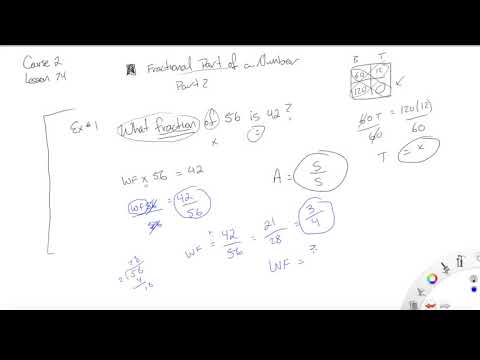 Course 2
Lesson 74
Fractional Part of a Number
Part 2
Ex # 1 What fraction of 56 is 42?
x =
WF x 56 = 42
WF 56 = 42
56 56
WF = 42 = 21 = 3
56 28 4
WF = ?
28
2 56
4
16
A = 5
5
B T
60 12
120
60 T = 120(12)
60 60
T = x